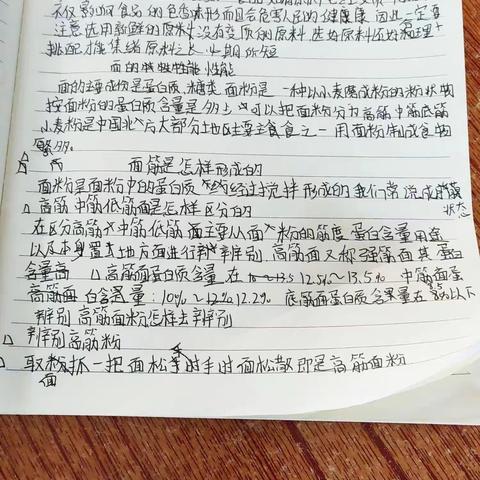 不仅影响食品的色香味形而且会危害人民的健康 因此一定要
注意选用新鲜的原料没有变质的原料 选的原料还均有合理
搭配才能集诸原料之长 少期低短
面的特性性能
面的主要成份是蛋白质、糖类 面粉是一种以小麦磨成粉的粉状物
按面粉的蛋白质含量是多少 可以把面粉分为高筋中筋底筋
小麦粉是中国北方大部分土地区主要主食之一 用面粉制成食物
繁多。
面筋是怎样形成的
面粉是面粉中的蛋白质 经过搅拌形成的我们常说成
状态
△ 高筋中筋低筋面是怎样区分的
在区分高筋 中筋低筋 面主要从面 粉的筋度 蛋白含量用途
以及本身置 地方面进行 辨别. 高筋面又称强筋面其蛋白
含量高 △高筋面蛋白质含量 在 12.5%~13.5% 中筋面蛋
白含量:10%~12.2% 底筋面蛋白质含量在 8.5%以下
辨别高筋面粉怎样去辨别
△ 辨别高筋粉
△ 取粉抹一把面松手时 面松散即是高筋面粉
面